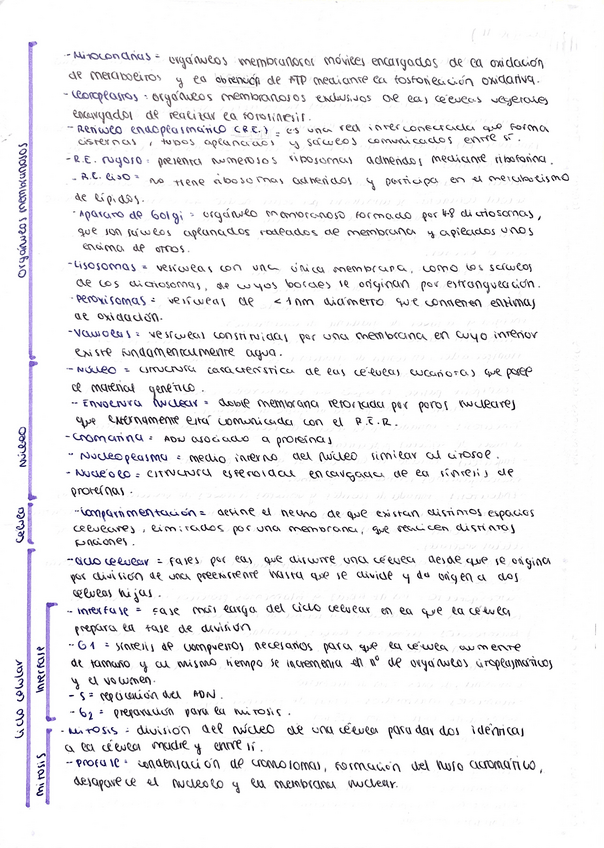 -Mitocondrias = orgánulos membranosos móviles encargados de la oxidación
de metabolitos y la obtención de ATP mediante la fosforilación oxidativa.
-Cloroplastos : orgánulos membranosos exclusivos de las células vegetales
encargados de realizar la fotosíntesis.
-Retículo endoplasmático (R.E.) = es una red interconectada que forma
cisternas, tubos aplanados y sáculos comunicados entre sí.
-R.E. rugoso : presenta numerosos ribosomas adheridos mediante riboforina.
-R.E. liso = no tiene ribosomas adheridos y participa en el metabolismo
de lípidos.
-Aparato de Golgi = orgánulo membranoso formado por 4-8 dictiosomas,
que son sáculos aplanados rodeados de membrana y apilados unos
encima de otros.
-Lisosomas = vesículas con una única membrana, como los sáculos
de los dictiosomas, de cuyos bordes se originan por estrangulación.
-Peroxisomas = vesículas de <1nm diámetro que contienen enzimas
de oxidación.
-Vacuolas = vesículas constituidas por una membrana en cuyo interior
existe fundamentalmente agua.
Orgánulos membranosos
-Núcleo = estructura característica de las células eucariotas que posee
el material genético.
-- Envoltura nuclear = doble membrana reforzada por poros nucleares
que externamente está comunicada con el R.E.R.
-Cromatina = ADN asociado a proteínas
-- Nucleoplasma = medio interno del núcleo similar al citosol.
-Nucléolo = estructura esferoidal encargada de la síntesis de
proteínas.
Núcleo
-Compartimentación = define el hecho de que existan distintos espacios
celulares, limitados por una membrana, que realicen distintas
funciones.
Célula
-Ciclo celular = fases por las que discurre una célula desde que se origina
por división de una preexistente hasta que se divide y da origen a dos
células hijas.
-Interfase = Fase más larga del ciclo celular en la que la célula
prepara la fase de división
-G1 = síntesis de compuestos necesarios para que la célula aumente
de tamaño y al mismo tiempo se incrementa el nº de orgánulos citoplasmáticos
y el volumen.
-S = replicación del ADN.
-G2 = preparación para la mitosis.
Interfase
-Mitosis = división del núcleo de una célula para dar dos idénticas
a la célula madre y entre sí.
-Profase = condensación de cromosomas, formación del huso acromático,
desaparece el nucleolo y la membrana nuclear.
Mitosis
Ciclo celular